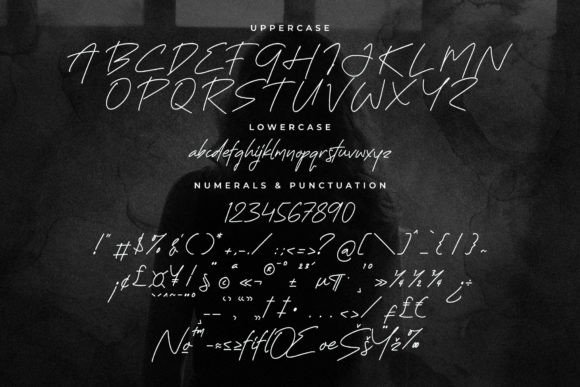 UPPERCASE
ABCDEFGHIJKLMN
OPQRSTUVWXYZ
LOWERCASE
abcdefghijklmnopqrstuvwxyz
NUMERALS & PUNCTUATION
1234567890
!"#$%&'()*+,-./:;<=>?@[\]^_`{|}~
¡¢£¤¥¦§¨©ª«¬®¯°±²³´µ¶·¸¹º»¼½¾¿÷